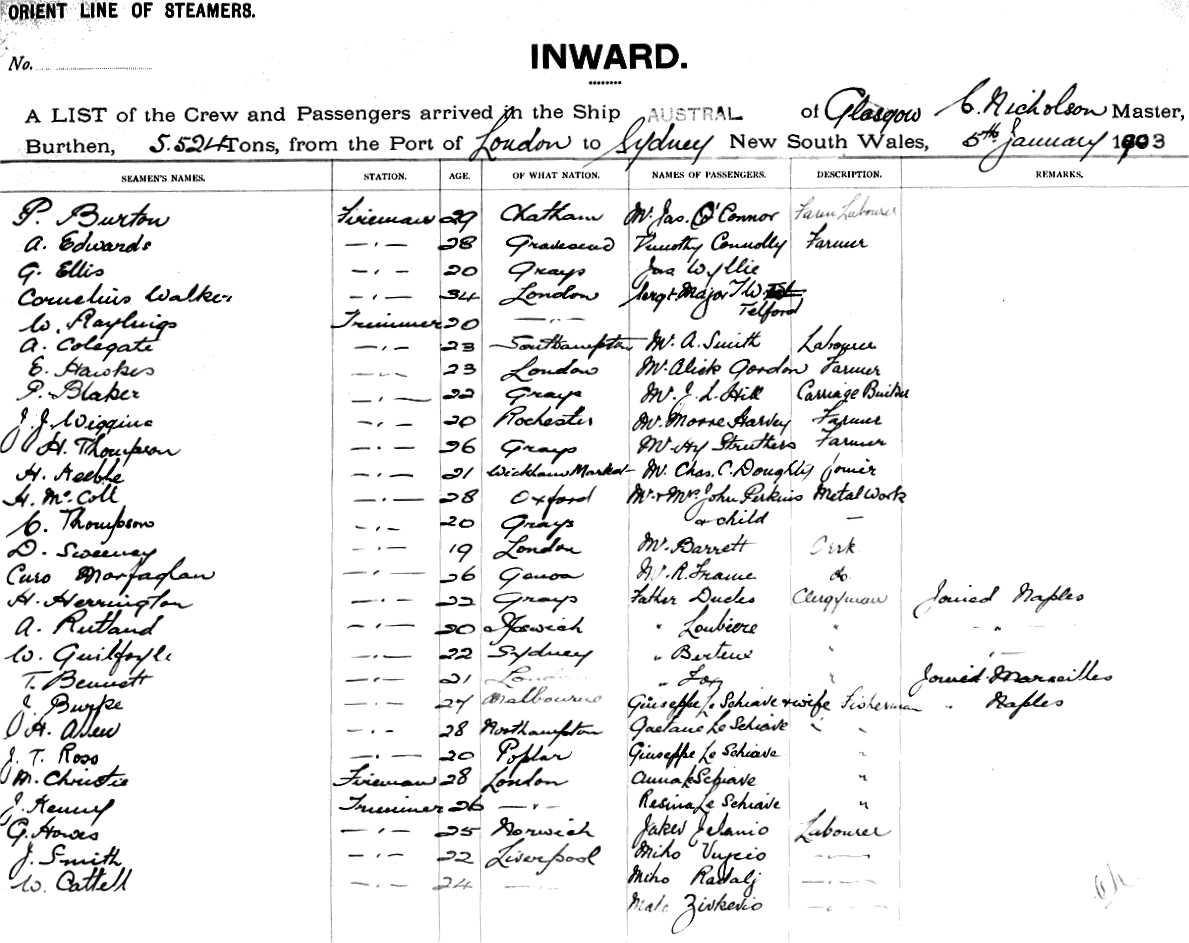 ORIENT LINE OF STEAMERS.
No.
INWARD.
A LIST of the Crew and Passengers arrived in the Ship AUSTRAL of Glasgow C. Nicholson Master,
Burthen, 5.524 Tons, from the Port of London to Sydney New South Wales, 5th January 1903
SEAMEN'S NAMES. STATION. AGE. OF WHAT NATION. NAMES OF PASSENGERS. DESCRIPTION. REMARKS.
P. Burton Fireman 29 Chatham Mr. Jas. O'Connor Farm Labourer
A. Edwards — " — 28 Gravesend Timothy Connolly Farmer
G. Ellis — " — 20 Grays Jas Wyllie
Cornelius Walker — " — 34 London Sergt Major T W
Telford
W. Raylings Trimmer 20 — " —
A. Colegate — " — 23 Southampton Mr. A. Smith Labourer
E. Hawkes — " — 23 London Mr. Alick Gordon Farmer
P. Blaker — " — 22 Grays Mr. J. L. Hill Carriage Builder
J. J. Wiggins — " — 20 Rochester Mr. Moore Harvey Farmer
H. Thompson — " — 26 Grays Mr Hy Struthers Farmer
H. Keeble — " — 21 Wickham Market Mr. Chas. C. Doughty Joiner
H. McColl — " — 28 Oxford Mr & Mrs John Perkins Metal Work
C. Thompson — " — 20 Grays & child —
D. Sweeney — " — 19 London Mr. Barrett Clerk
Curo — " — 26 Genoa Mr. R. Frame do
H. Herrington — " — 22 Grays Father Ducles Clergyman Joined Naples
A. Rutland — " — 20 Ipswich " Loubiere " — " —
W. Guilfoyle — " — 22 Sydney " Berteux " — " —
T. Bennett — " — 21 London " " Joined Marseilles
J. Burke — " — 27 Melbourne Giuseppe Lo Schiave & wife Fisherman " Naples
H. Allen — " — 28 Northampton Gaetano Lo Schiave " "
J. T. Ross — " — 20 Poplar Giuseppe Lo Schiave "
M. Christie Fireman 28 London Anna Lo Schiave "
J. Kenny Trimmer 26 — " — Resina Lo Schiave "
G. Howes — " — 25 Norwich Jakev Jelanio Labourer
J. Smith — " — 22 Liverpool Miho Vujcio — " —
W. Cattell — " — 24 — " — Miho Radalj — " —
Mato Zivkovio — " —